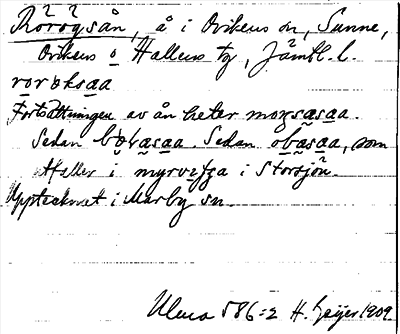 Rörögsån, å i Ovikens sn, Sunne,
Ovikens o Hallens tg, Jämtl. l.
rorøksaa
Fortsättningen av ån heter moγsasaa.
Sedan bøvasaa. Sedan obasaa, som
faller i myrvefγa i Storsjön.
Upptecknat i Marby sn.
Ulma 586:2 H. Geijer 1909